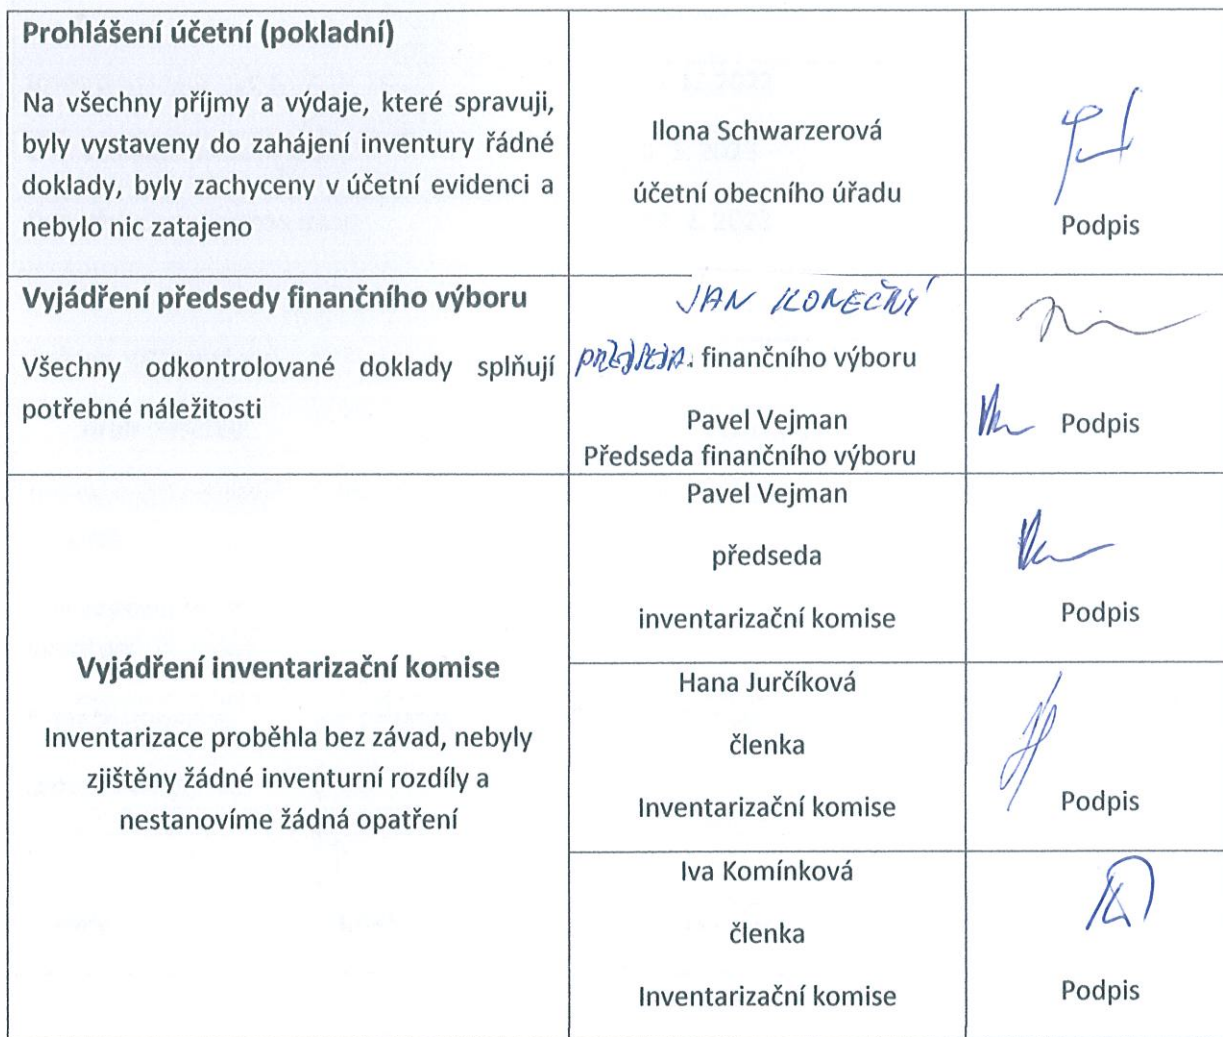 Prohlášení účetní (pokladní)
Na všechny příjmy a výdaje, které spravuji,
byly vystaveny do zahájení inventury řádné
doklady, byly zachyceny v účetní evidenci a
nebylo nic zatajeno
Ilona Schwarzerová
účetní obecního úřadu
Podpis
Vyjádření předsedy finančního výboru
Všechny odkontrolované doklady splňují
potřebné náležitosti
JAN KONEČNÝ
finančního výboru
Pavel Vejman
Předseda finančního výboru
Podpis
Vyjádření inventarizační komise
Inventarizace proběhla bez závad, nebyly
zjištěny žádné inventurní rozdíly a
nestanovíme žádná opatření
Pavel Vejman
předseda
inventarizační komise
Podpis
Hana Jurčíková
členka
Inventarizační komise
Podpis
Iva Komínková
členka
Inventarizační komise
Podpis